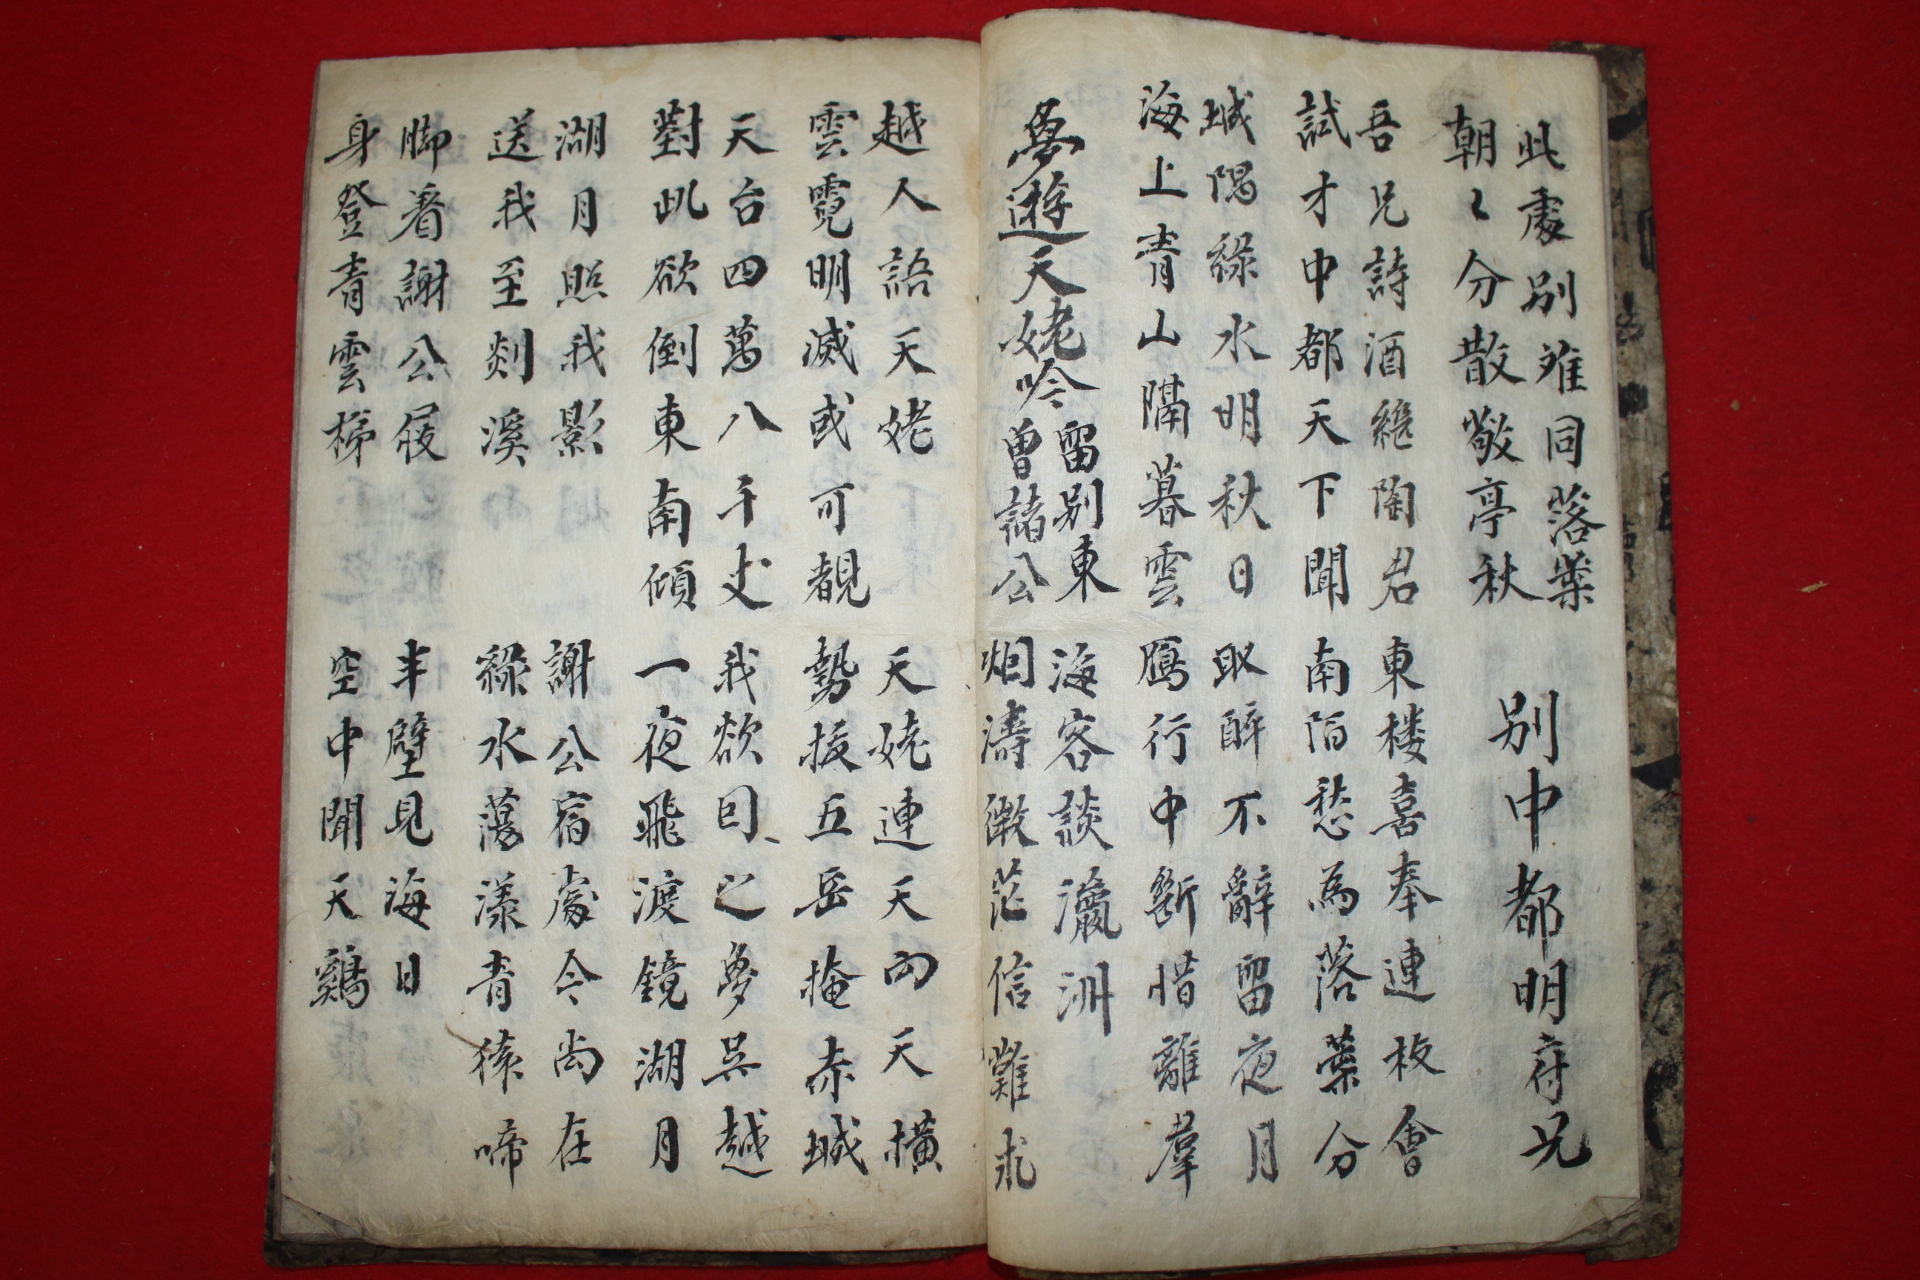 此處別難同落葉
朝〻分散敬亭秋
別中都明府兄
吾兄詩酒継陶君
試才中都天下聞
東楼喜奉連枚會
南陌愁為落葉分
城隅綠水明秋日
海上青山隔暮雲
取醉不辭留夜月
鴈行中斷惜離羣
夢遊天姥吟
留別東
曾諸公
海客談瀛洲
烟濤微茫信難求
越人語天姥
雲霓明滅或可覩
天姥連天向天橫
勢拔五岳掩赤城
天台四萬八千丈
對此欲倒東南傾
我欲因之夢吳越
一夜飛渡鏡湖月
湖月照我影
送我至剡溪
謝公宿處今尚在
綠水蕩漾青猿啼
脚着謝公屐
身登青雲梯
半壁見海日
空中聞天鷄